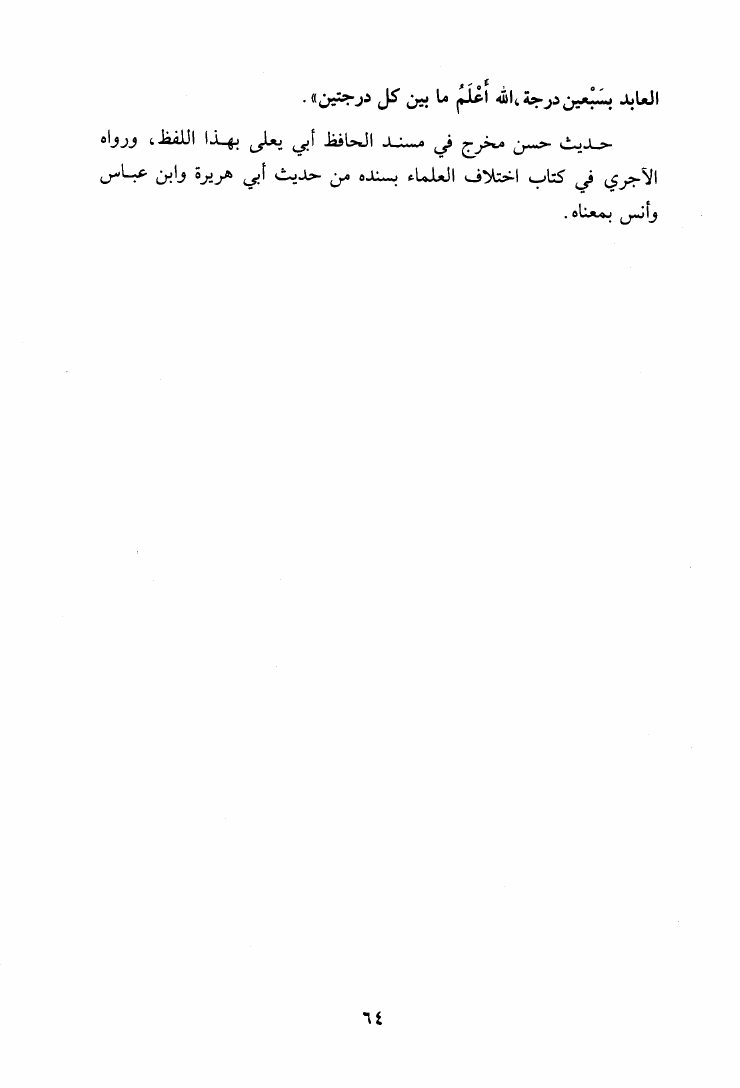 العابد بِسَبْعين درجة، الله أَعْلَمُ ما بين كل درجتين».
حديث حسن مخرج في مسند الحافظ أبي يعلى بهذا اللفظ، ورواه
الآجري في كتاب اختلاف العلماء بسنده من حديث أبي هريرة وابن عباس
وأنس بمعناه.
٦٤